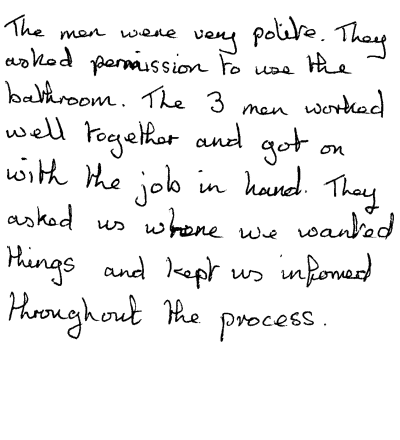 The men were very polite. They
asked permission to use the
bathroom. The 3 men worked
well together and got on
with the job in hand. They
asked us where we wanted
things and kept us informed
throughout the process.